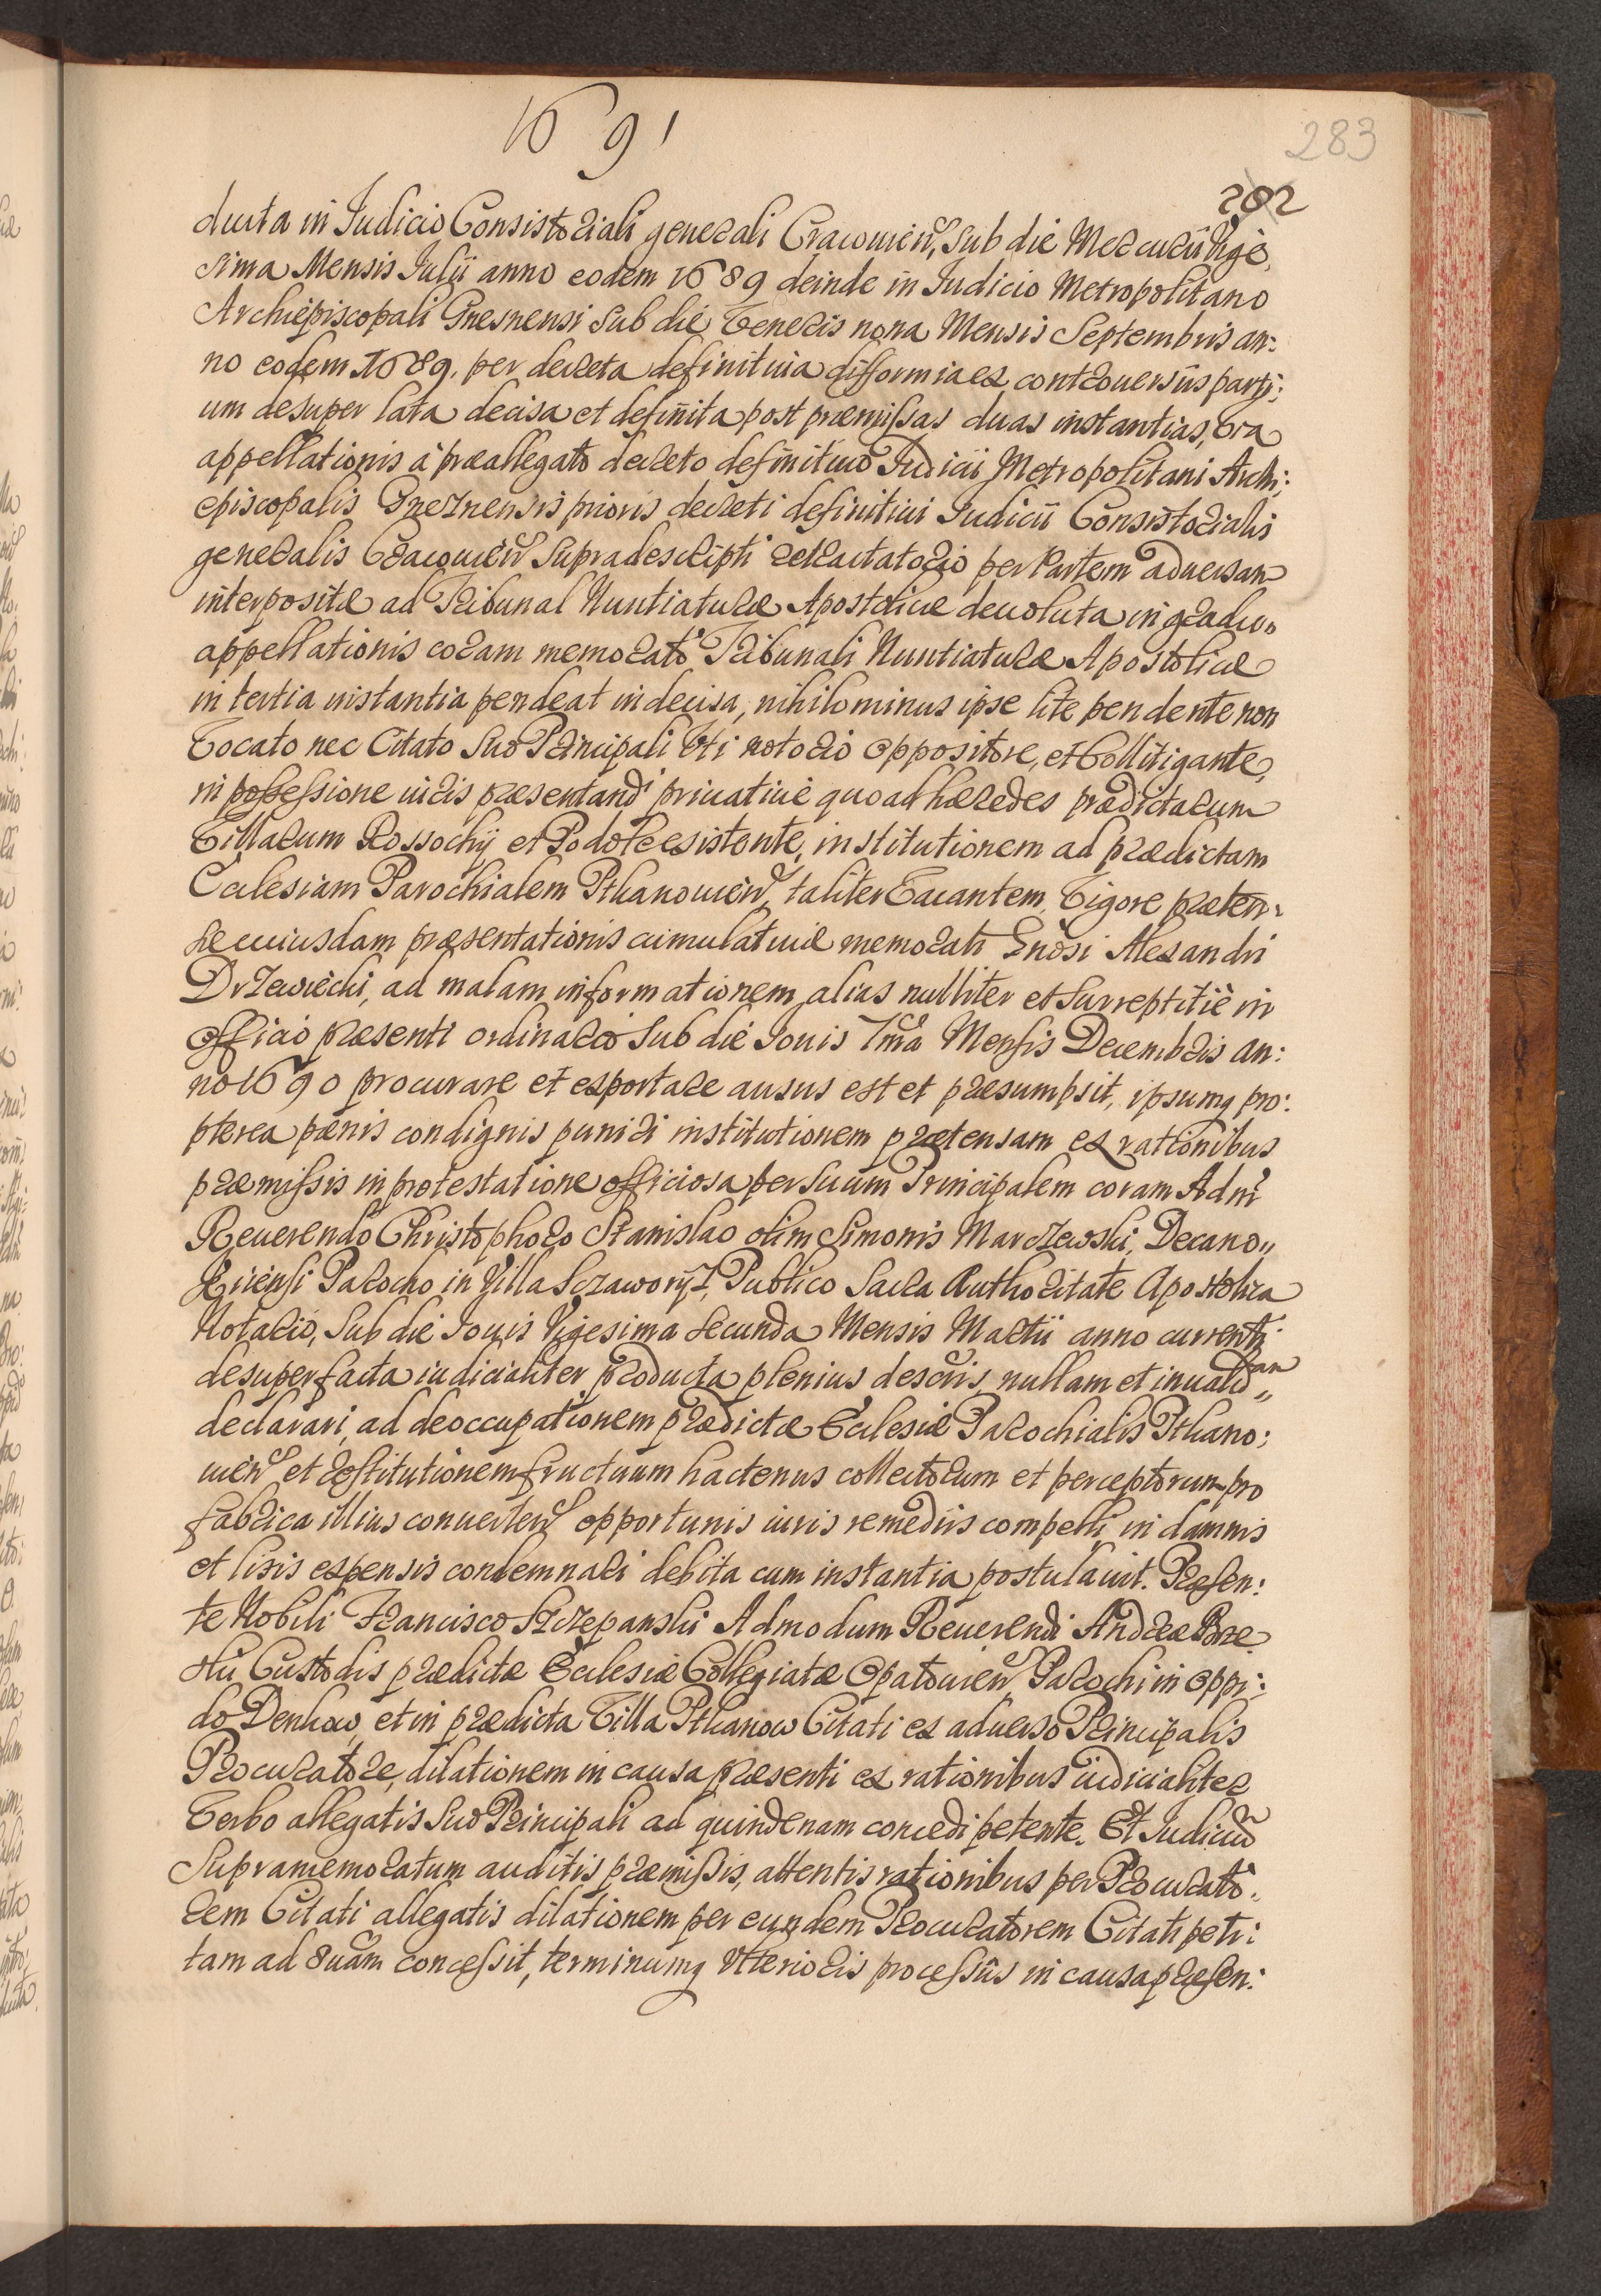 1691
283
202
ducta in Iudicio Consistoriali generali Cracouien, sub die Mercurii Vige,
sima Mensis Iulii anno eodem 1689 deinde in Iudicio Metropolitano
Archiepiscopali Gnesnensi sub die Veneris nona Mensis Septembris an:
no eodem 1689. per decreta definitiua difformia ex controuersiis parti:
um desuper lata decisa et definita post præmissas duas instantias, vra
appellationis à præallegato decreto definitiuo Iudicii Metropolitani Archi:
episcopalis Gneznensis prioris decreti definitiui Iudicii Consistorialis
generalis Cracouien supradescripti retractatorio per Partem aduersan
interpositæ ad Tribunal Nuntiaturæ Apostolicæ deuoluta in gradu
appellationis coram memorato Tribunali Nuntiaturæ Apostolicæ
in tertia instantia pendeat indecisa, nihilominus ipse lite pendente non
Vocato nec Citato suo Principali Vti notorio oppositore, et Collitigante,
in possessione iuris præsentandi priuatiuè quoad hæredes prædictarum
Villarum Rossochy et Podole existente, institutionem ad prædictam
Ecclesiam Parochialem Ptkanouien, taliter Vacantem, Vigore præten:
sæ cuiusdam præsentationis cumulatiuæ memorati Gnosi Alexandri
Drzewiecki, ad malam informationem, alias nulliter et surreptitiè in
officio præsenti ordinario sub die Iouis 7ma Mensis Decembris an:
no 1690 procurare et exportare ausus est et præsumpsit, ipsumq pro:
pterea pænis condignis puniri institutionem prætensam ex rationibus
præmissis in protestatione officiosa per suum Principalem coram Adm
Reuerendo Christophoro Stanislao olim Simonis Marczewski, Decano
Parocho in Villa Publico Sacra Authoritate Apostolica
Notario, sub die Iouis Vigesima secunda Mensis Martii anno currenti
desuper facta iudicialiter producta plenius descris, nullam et inualidam
declarari, ad deoccupationem prædictæ Ecclesiæ Parochialis Ptkano:
uien et restitutionem fructuum hactenus collectorum et perceptorum pro
fabrica illius conuerten opportunis iuris remediis compelli, in damnis
et lisis expensis condemnari debita cum instantia postulauit. Præsen:
te Nobili Francisco Szczepanski Admodum Reuerendi Andreæ Brze
ski Custodis prædictæ Ecclesiæ Collegiatæ Opatouien Parochi in Oppi:
do Denkow, et in prædicta Villa Ptkanow Citati ex aduerso Principalis
Procuratore, dilationem in causa præsenti ex rationibus iudicialiter
Verbo allegatis suo Principali ad quindenam concedi petente. Et Iudicium
Supramemoratum auditis præmissis, attentis rationibus per Procurato:
rem Citati allegatis dilationem per eundem Procuratorem Citati peti:
tam ad 8uam concessit, terminumq Vlterioris processûs in causa præsen: